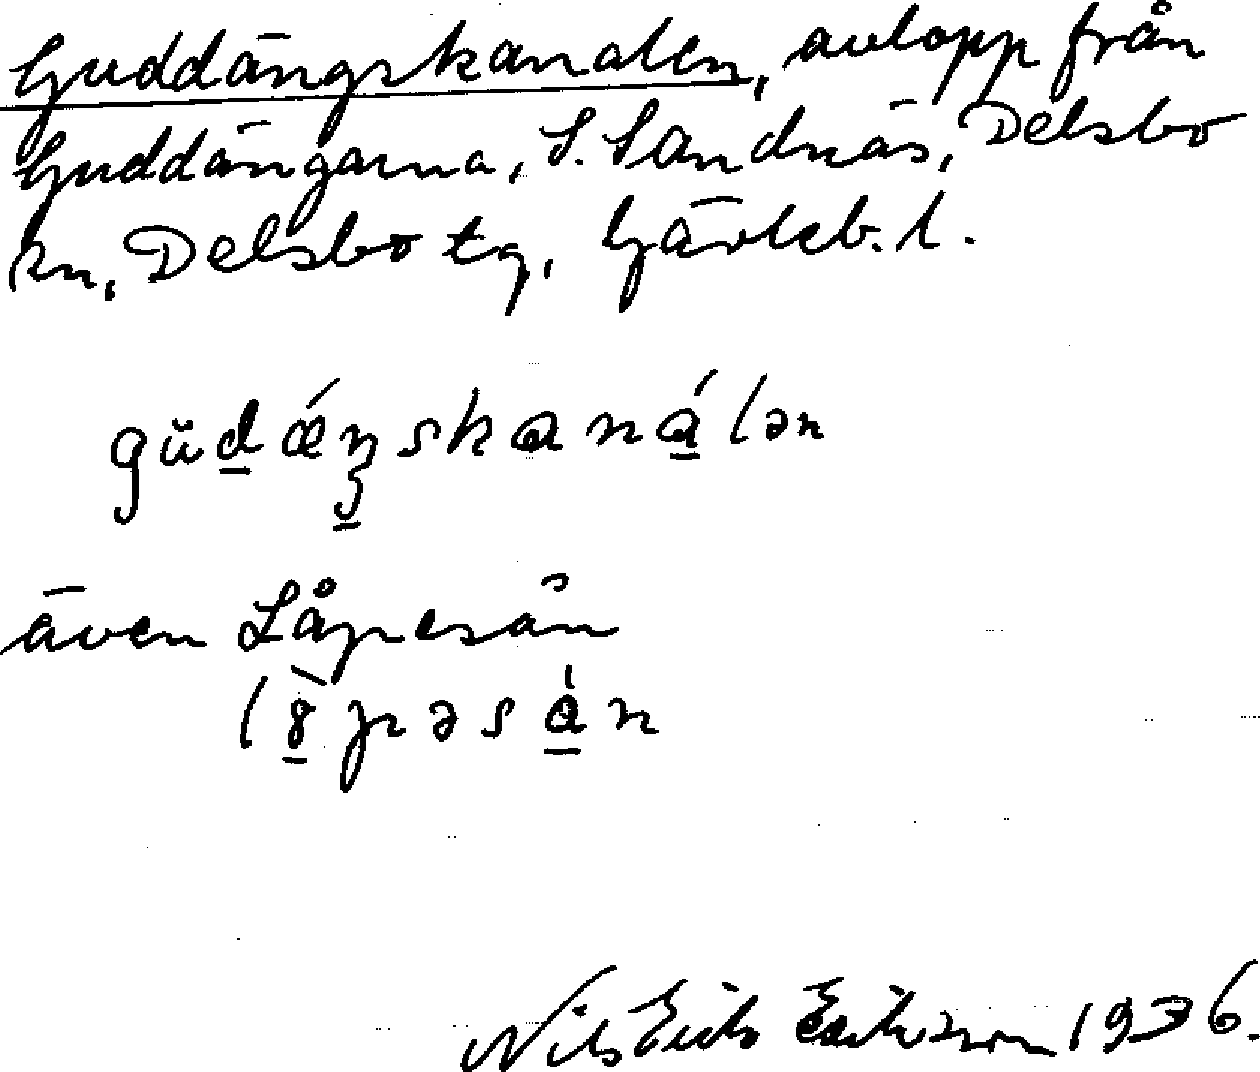 Guddängskanalen, avlopp från
Guddängarna, S. Sandnäs, Delsbo
sn, Delsbo tg, Gävleb. l.
gŭd̲ǽŋ̲skaná̲lən
även Låpesån
lò̲pəså̲n
Nils Erik Eriksson 1936.